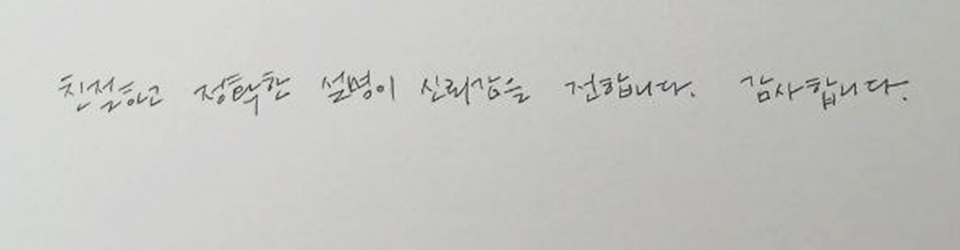 친절하고 정확한 설명이 신뢰감을 전합니다. 감사합니다.